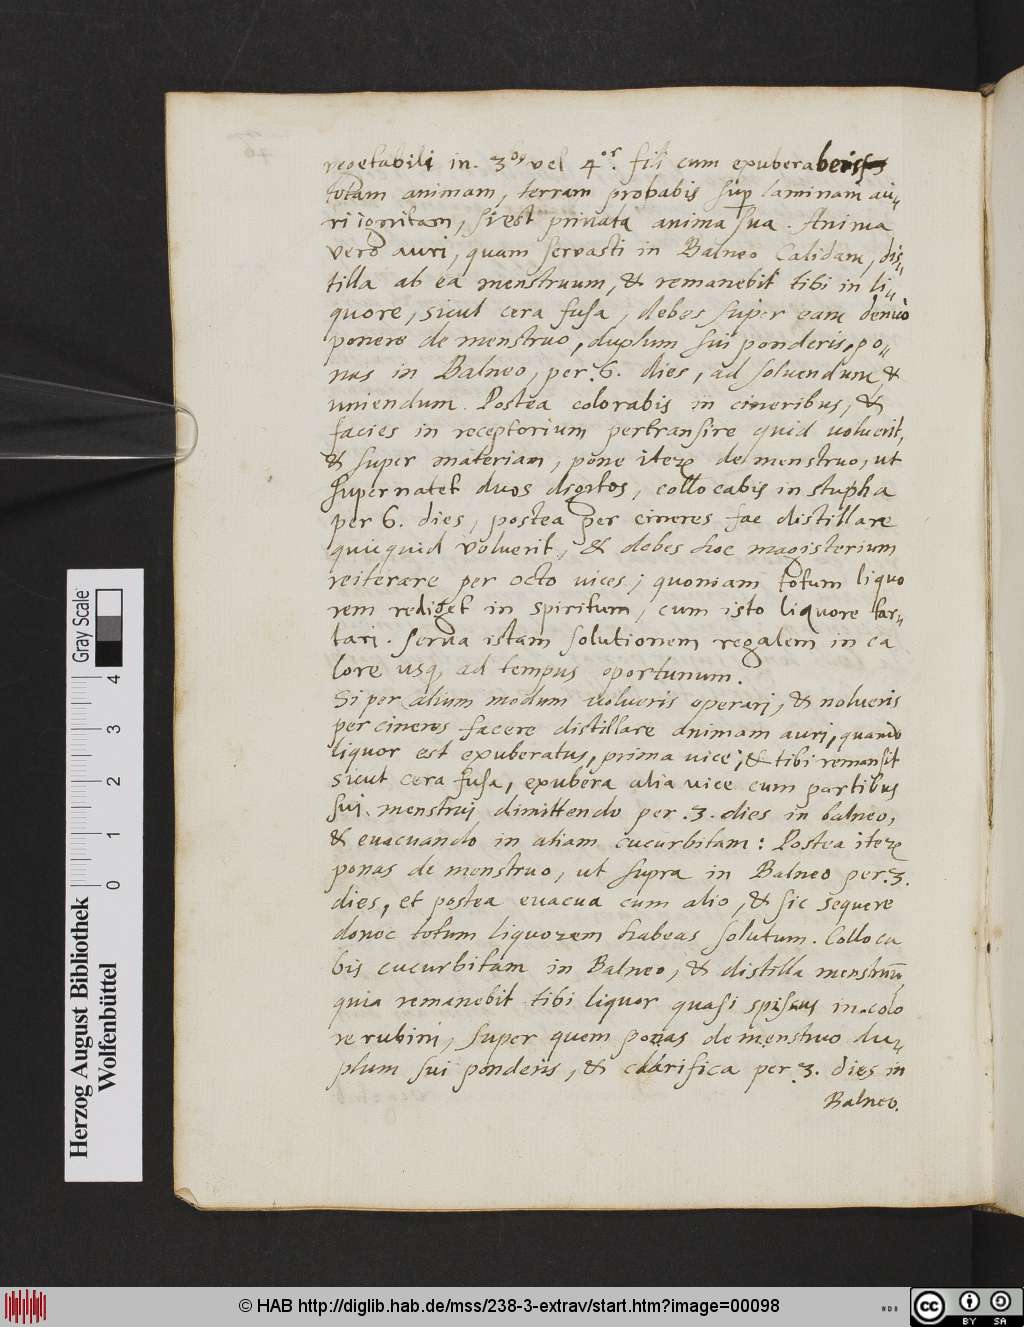 vegetabili in. 3.or vel 4.or fili cum exuberaberis
totam animam, terram probabis sup laminam au-
ri ignitam, si est privata anima sua. Anima
vero auri, quam servasti in Balneo Calidam, dis-
tilla ab ea menstruum, & remanebit tibi in li-
quore, sicut cera fusa, debes super eam denuò
ponere de menstruo, duplum sui ponderis, po-
nas in Balneo, per. 6. dies, ad soluendum, &
uniendum. Postea colorabis in cineribus, &
facies in receptorium pertransire quid voluerit,
& super materiam, pone iterz de menstruo, ut
supernatet duos digitos, collocabis in stupha
per 6. dies, postea per cineres fac distillare
quicquid voluerit, & debes hoc magisterium
reiterare per octo vices, quoniam totum liquo
rem rediget in spiritum, cum isto liquore tar-
tari. serva istam solutionem regalem in ca
lore usq, ad tempus oportunum.
Si per alium modum volueris operari, & nolueris
per cineres facere distillare animam auri, quando
liquor est exuberatus, prima vice, & tibi remansit
sicut cera fusa, exubera alia vice cum partibus
sui. menstrui dimittendo per. 3. dies in balneo,
& evacuando in aliam cucurbitam: Postea iterz
ponas de menstruo, ut supra in Balneo per. 3.
dies, et postea evacua cum alio, & sic sequere
donec totum liquorem habeas solutum. Colloca
bis cucurbitam in Balneo, & distilla menstruū,
quia remanebit tibi liquor quasi spissus in colo
re rubini, super quem ponas de menstruo du-
plum sui ponderis, & clarifica per. 3. dies in
Balneo.
Herzog August Bibliothek
Wolfenbüttel
Gray Scale
0 1 2 3 4
© HAB http://diglib.hab.de/mss/238-3-extrav/start.htm?image=00098
NDB
cc BY SA